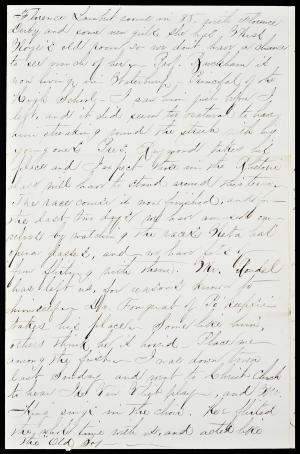 Florence Lambert come in '88 with Florence
Derby and some new girls. She has Miss
old room, so we don't have a chance
to see much of her. Prof. Buckham is
now living in Waterbury, Principal of the
High School. I saw him just before I
left, and it did seem too natural to have
him sneaking round the streets with his
young ones. Prof. Raymond takes his
place and I expect those in the Rhetoric
class will have to stand around this term.
The race course is now finished, and for
the last two days we have amused our-
selves by watching the races. Neta has
opera glasses, and we have lots of
fun flirting with them. Mr.
has left us, for reasons known to
himself. Mr. of Po'keepsie
takes his place. Some like him,
others think he is horrid. Place me
among the first. I was down town
last Sunday and went to Christ Church
to hear the Van play, and Mr.
King sing in the choir. Ker flirted
the whole time with us, and acted like
the "Old Boy"